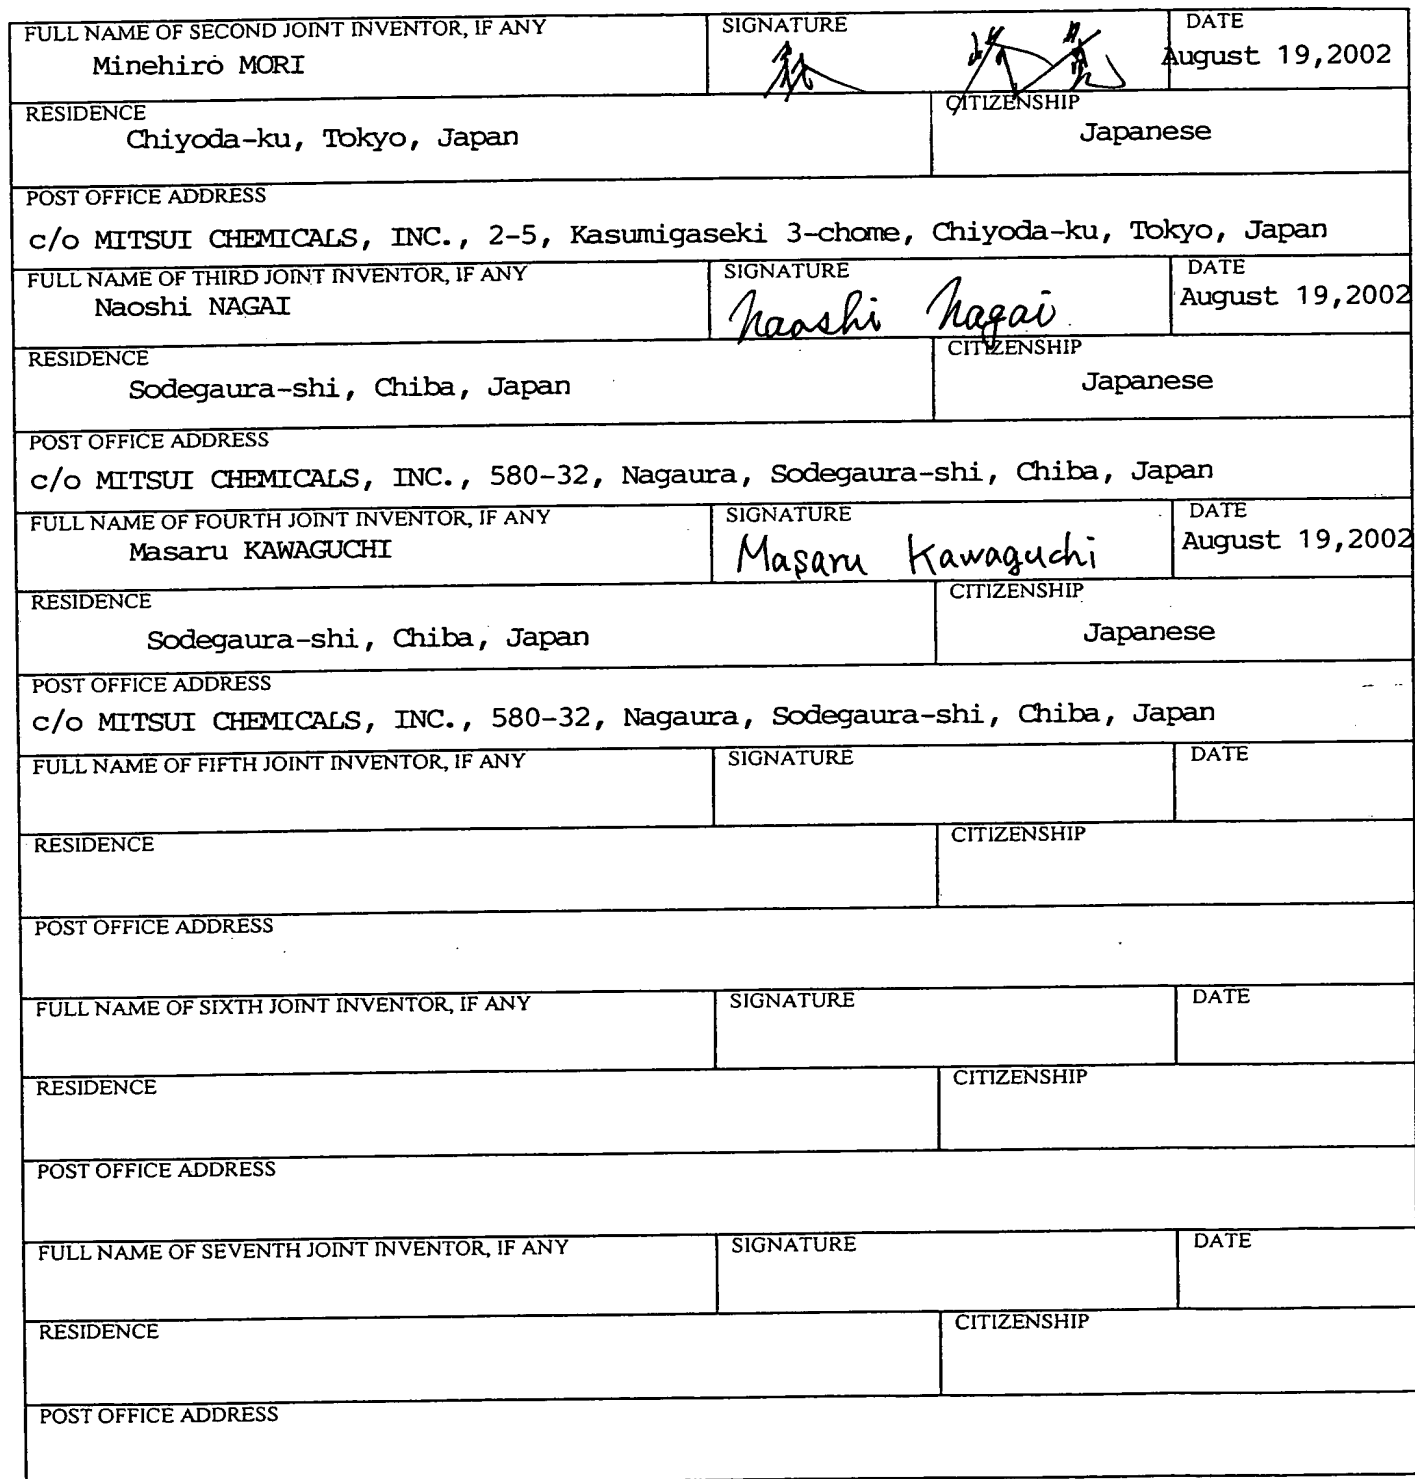 FULL NAME OF SECOND JOINT INVENTOR, IF ANY SIGNATURE DATE
Minehiro MORI August 19,2002
RESIDENCE CITIZENSHIP
Chiyoda-ku, Tokyo, Japan Japanese
POST OFFICE ADDRESS
c/o MITSUI CHEMICALS, INC., 2-5, Kasumigaseki 3-chome, Chiyoda-ku, Tokyo, Japan
FULL NAME OF THIRD JOINT INVENTOR, IF ANY SIGNATURE DATE
Naoshi NAGAI Naoshi Nagai August 19,2002
RESIDENCE CITIZENSHIP
Sodegaura-shi, Chiba, Japan Japanese
POST OFFICE ADDRESS
c/o MITSUI CHEMICALS, INC., 580-32, Nagaura, Sodegaura-shi, Chiba, Japan
FULL NAME OF FOURTH JOINT INVENTOR, IF ANY SIGNATURE DATE
Masaru KAWAGUCHI Masaru Kawaguchi August 19,2002
RESIDENCE CITIZENSHIP
Sodegaura-shi, Chiba, Japan Japanese
POST OFFICE ADDRESS
c/o MITSUI CHEMICALS, INC., 580-32, Nagaura, Sodegaura-shi, Chiba, Japan
FULL NAME OF FIFTH JOINT INVENTOR, IF ANY SIGNATURE DATE
RESIDENCE CITIZENSHIP
POST OFFICE ADDRESS
FULL NAME OF SIXTH JOINT INVENTOR, IF ANY SIGNATURE DATE
RESIDENCE CITIZENSHIP
POST OFFICE ADDRESS
FULL NAME OF SEVENTH JOINT INVENTOR, IF ANY SIGNATURE DATE
RESIDENCE CITIZENSHIP
POST OFFICE ADDRESS